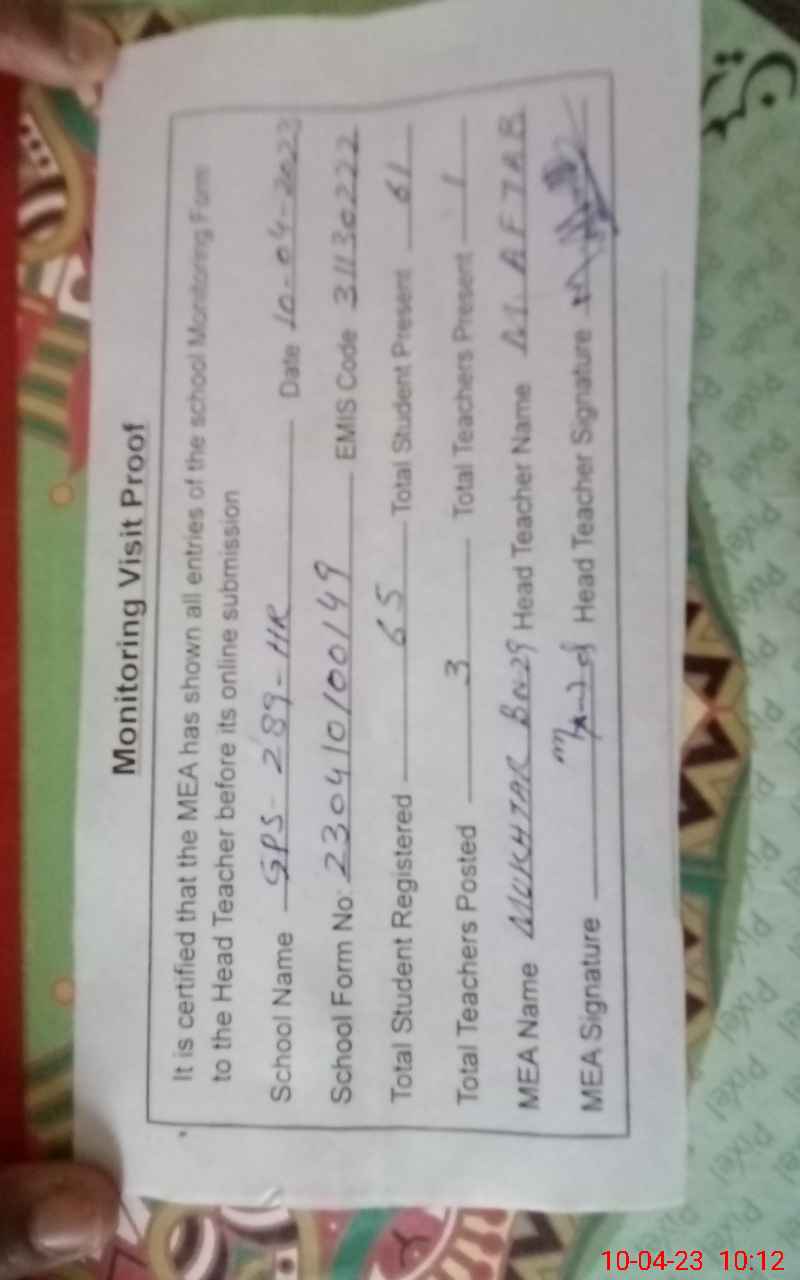 Monitoring Visit Proof
It is certified that the MEA has shown all entries of the school Monitoring Form
to the Head Teacher before its online submission
School Name GPS-289-HR Date 10-04-2023
School Form No: 230410100149 EMIS Code 31130222
Total Student Registered 65 Total Student Present 61
Total Teachers Posted 3 Total Teachers Present 1
MEA Name MUKHTAR Head Teacher Name M. AFTAB
MEA Signature Head Teacher Signature
Pixel
10-04-23 10:12